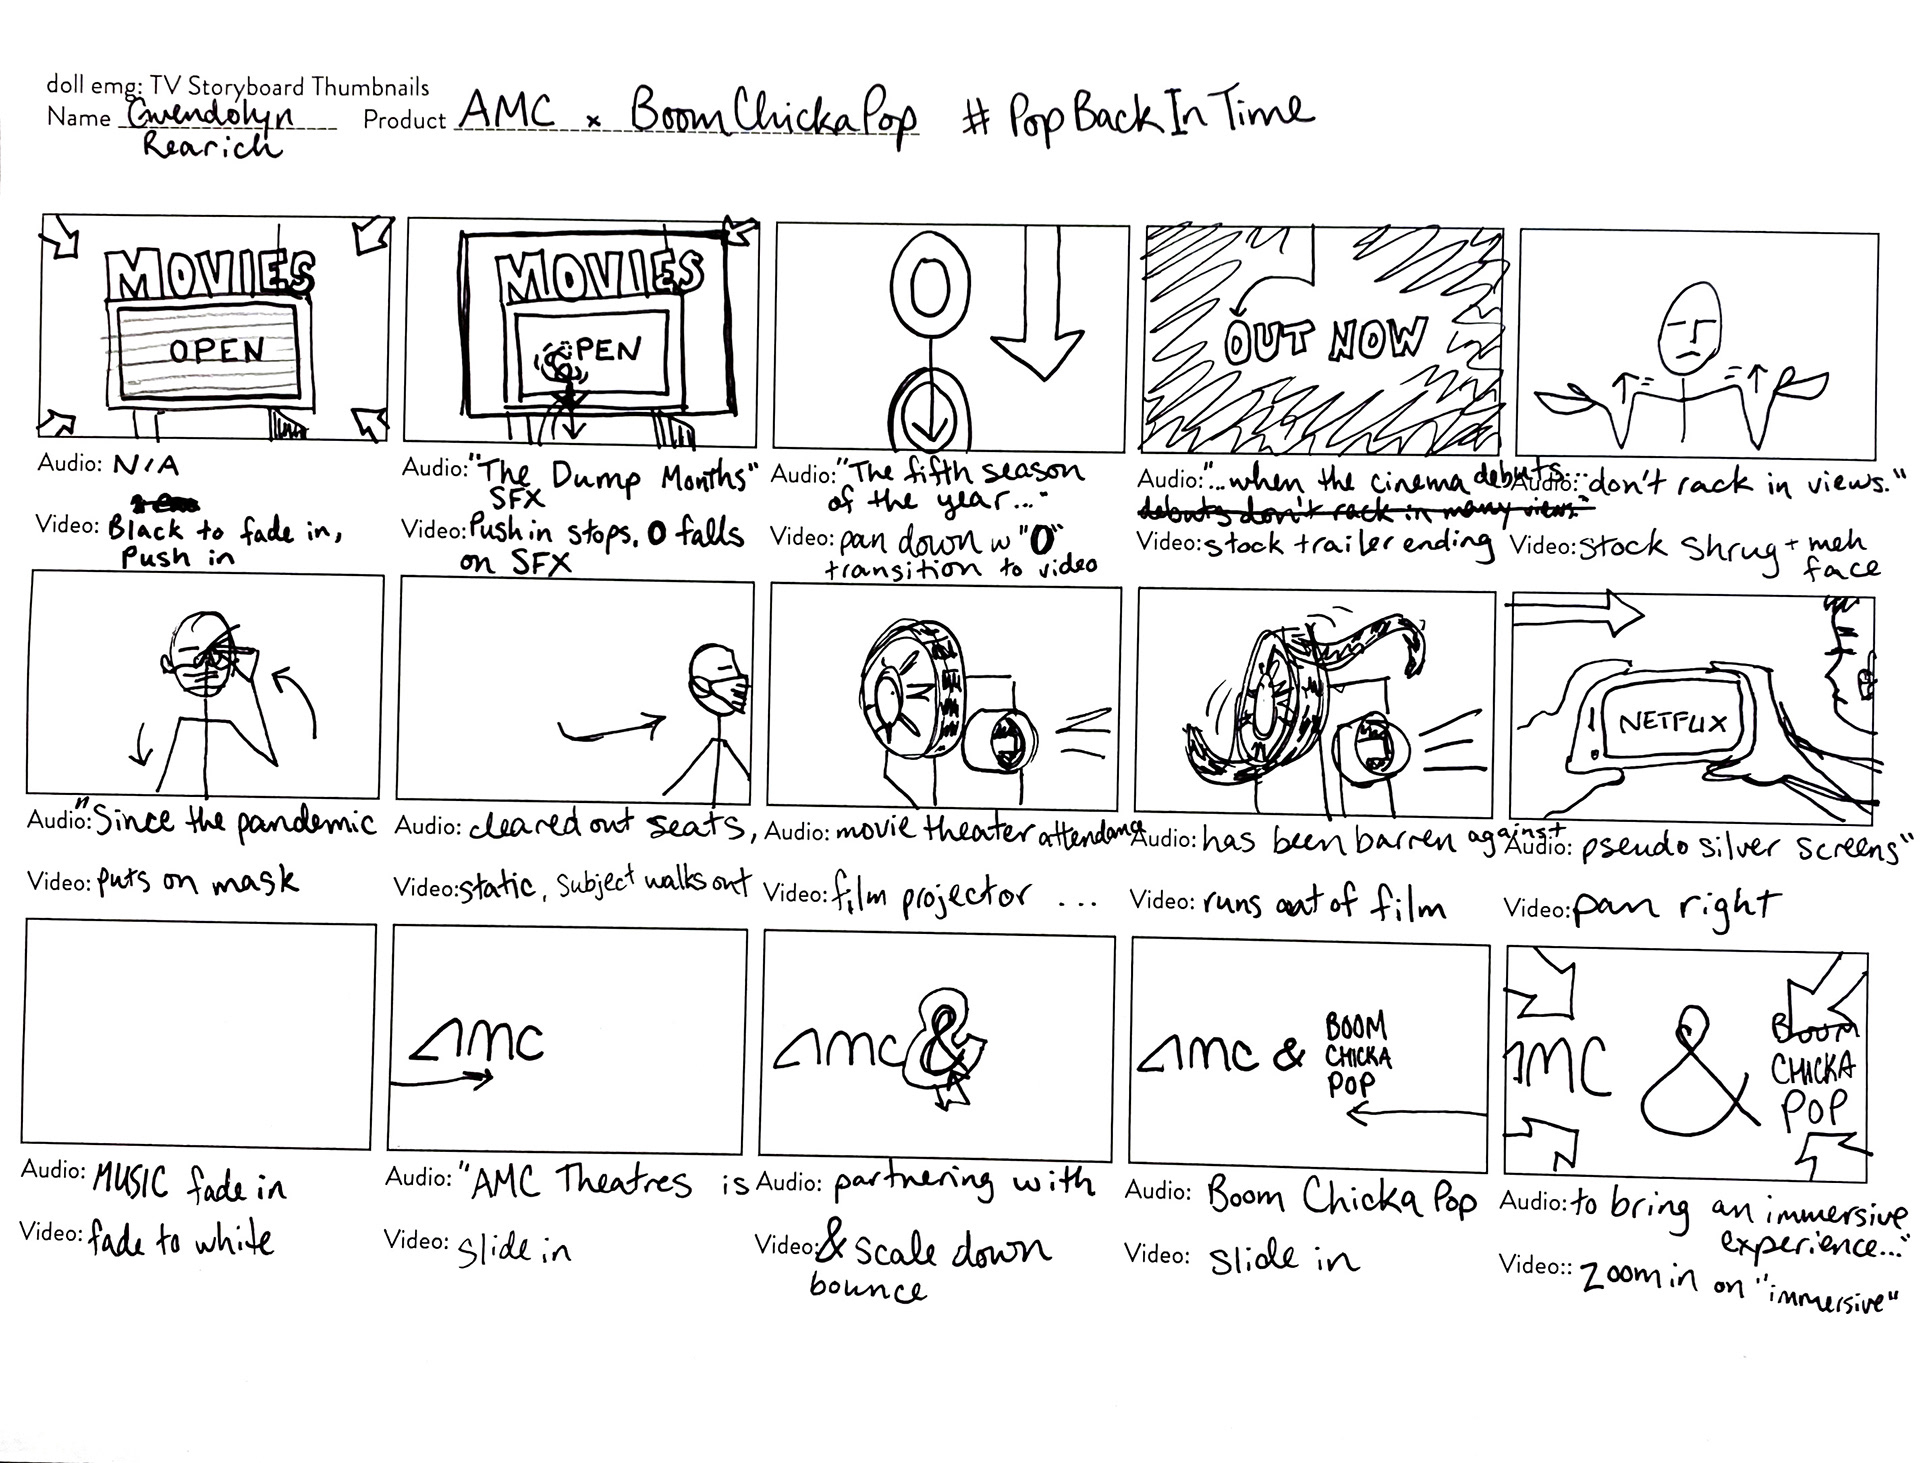 doll emg: TV Storyboard Thumbnails
Name Gwendolyn Rearich Product AMC x BoomChickaPop #PopBackInTime
MOVIES
OPEN
Audio: N/A
Video: Black to fade in,
Push in
MOVIES
OPEN
Audio: "The Dump Months"
SFX
Video: Push in stops. O falls
on SFX
O
Audio: "The fifth season
of the year..."
Video: pan down w "O"
transition to video
OUT NOW
Audio: "...when the cinema debuts...
debuts don't rack in many views."
Video: stock trailer ending
Audio: "don't rack in views."
Video: stock shrug + meh
face
Audio: "Since the pandemic
Video: puts on mask
Audio: cleared out seats,
Video: static, subject walks out
Audio: movie theater attendance
Video: film projector ...
Audio: has been barren against
Video: runs out of film
NETFLIX
Audio: pseudo silver screens"
Video: pan right
Audio: MUSIC fade in
Video: fade to white
AMC
Audio: "AMC Theatres is
Video: slide in
AMC &
Audio: partnering with
Video: & scale down
bounce
AMC & BOOM
CHICKA
POP
Audio: Boom Chicka Pop
Video: slide in
AMC & BOOM
CHICKA
POP
Audio: to bring an immersive
experience..."
Video:: zoom in on "immersive"